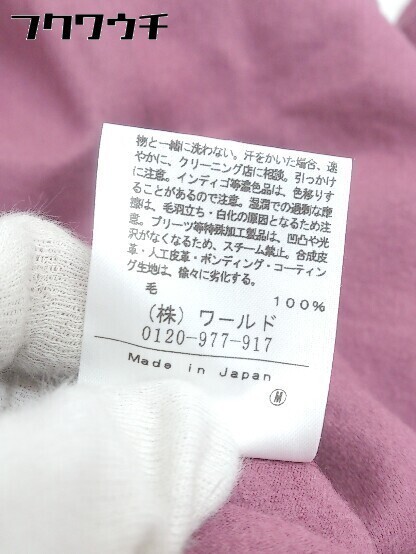 フクワウチ
物と一緒に洗わない。汗をかいた場合、速
やかに、クリーニング店に相談。引っかけ
に注意。インディゴ等濃色品は、色移りす
ることがあるので注意。湿潤での過剰な摩
擦は、毛羽立ち・白化の原因となるため注
意。プリーツ等特殊加工製品は、凹凸や光
沢がなくなるため、スチーム禁止。合成皮
革・人工皮革・ボンディング・コーティン
グ生地は、徐々に劣化する。
毛 100%
(株) ワールド
0120-977-917
Made in Japan
M